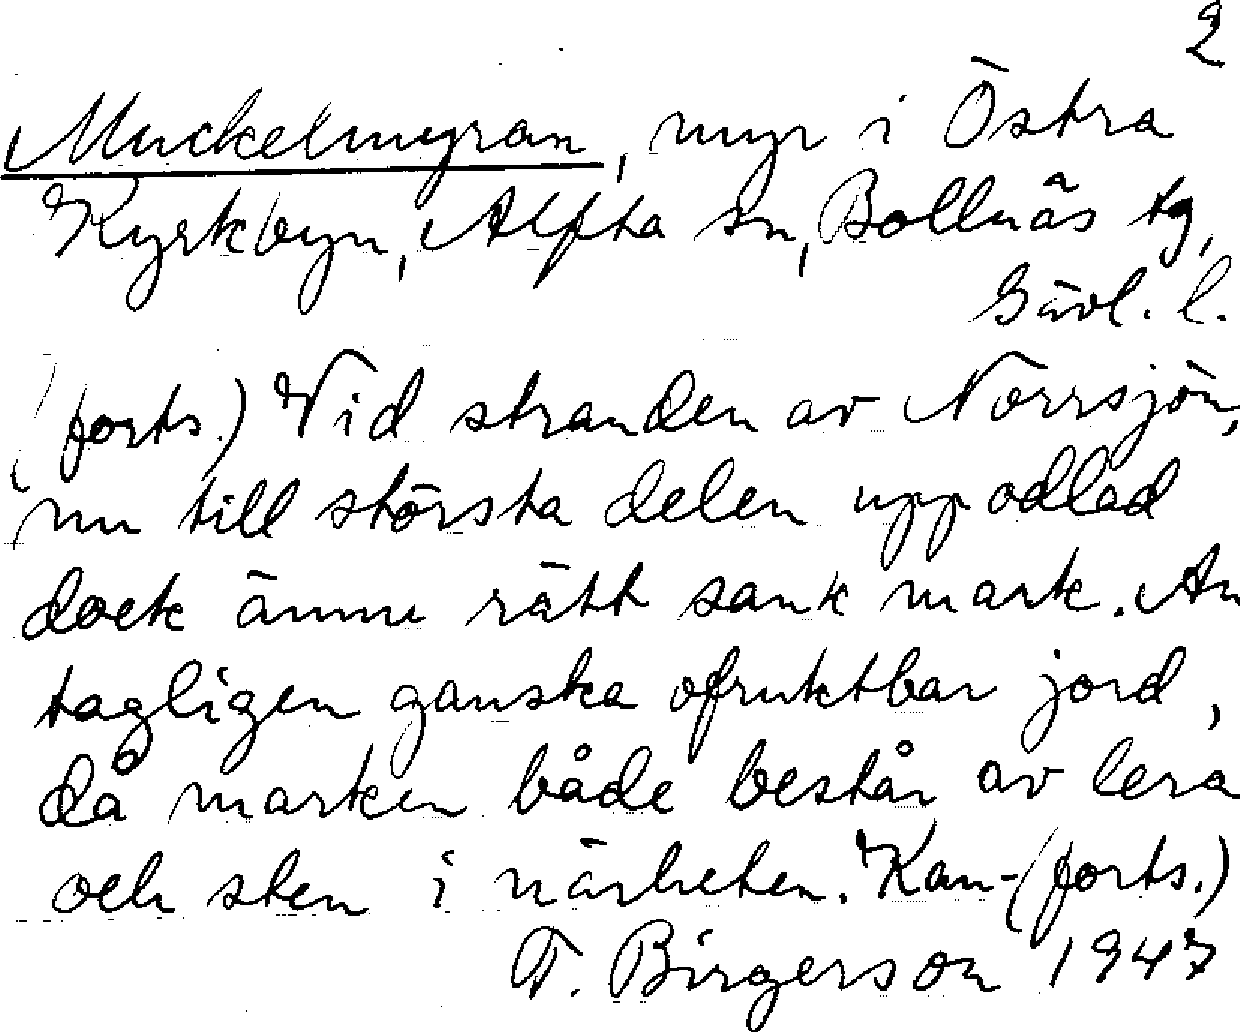 2
Muckelmyran, myr i Östra
Kyrkbyn, Alfta sn, Bollnäs tg,
Gävl. l.
(forts.) Vid stranden av Norrsjön,
nu till största delen uppodlad
dock ännu rätt sank mark. An
tagligen ganska ofruktbar jord,
då marken både består av lera
och sten i närheten. Kan- (forts.)
T. Birgerson 1947